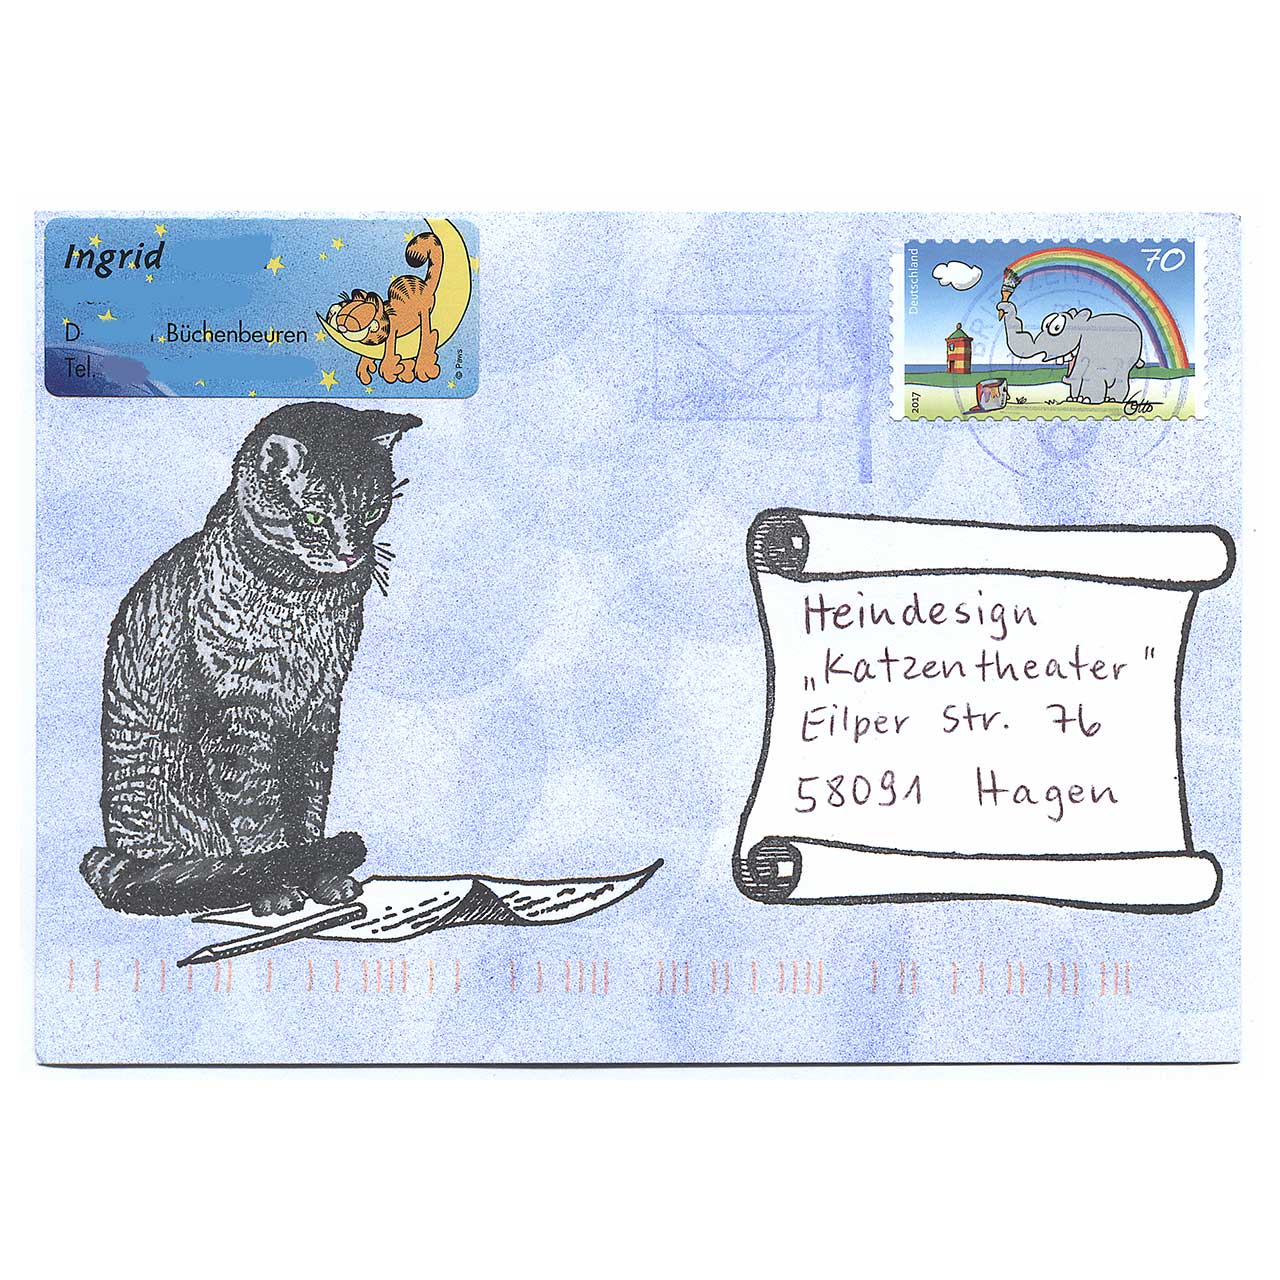 Ingrid
D Büchenbeuren
Tel.
© Paws
Deutschland
70
2017
Otto
Heindesign
„Katzentheater"
Eilper Str. 76
58091 Hagen